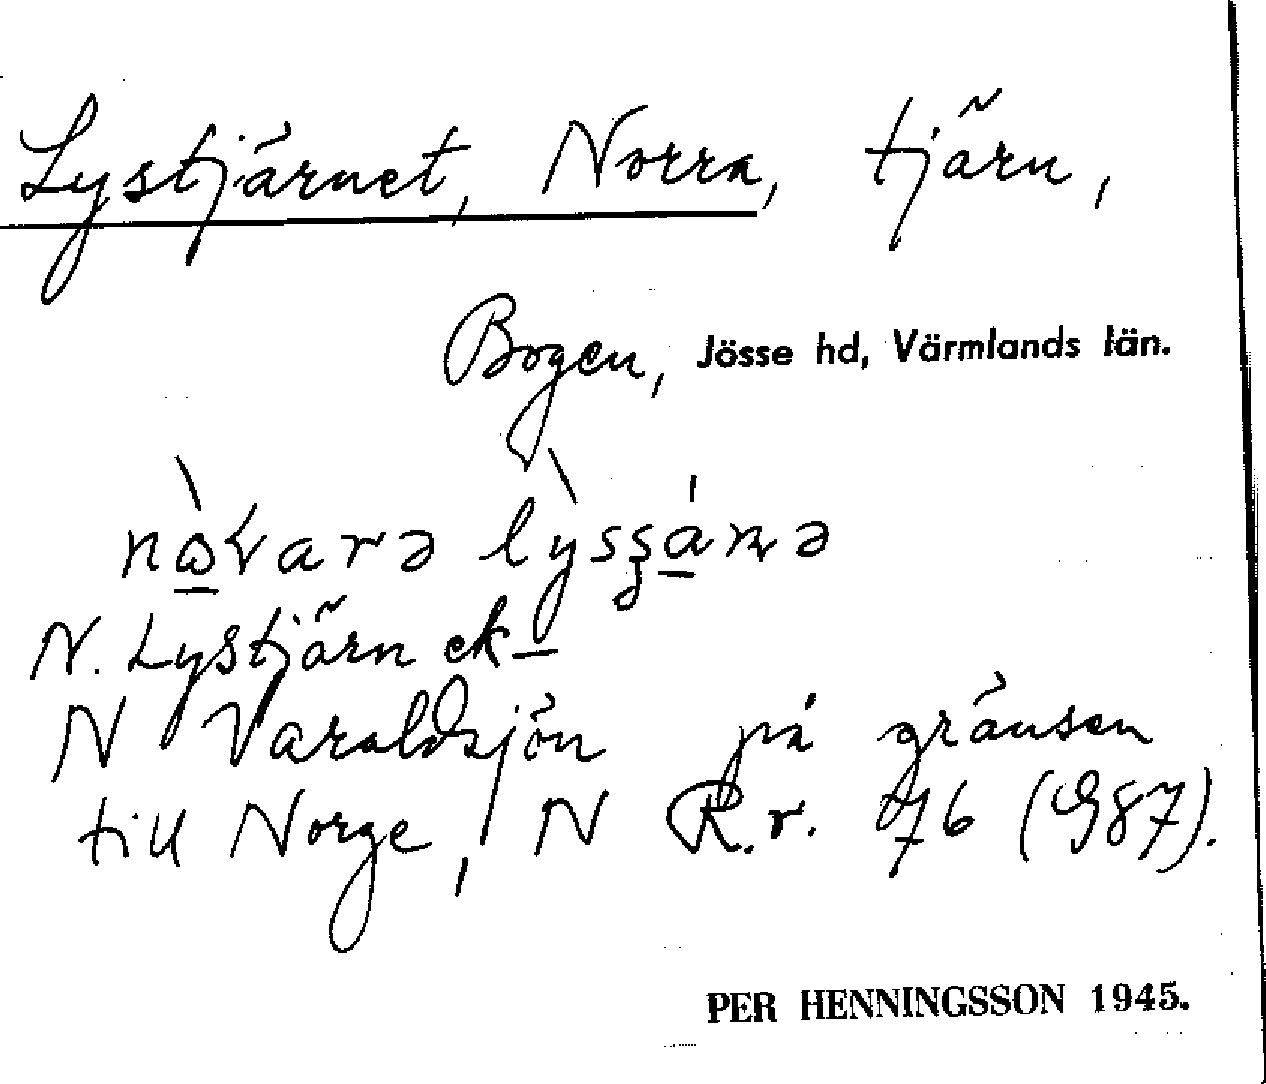 Lystjärnet, Norra, tjärn,
Bogen, Jösse hd, Värmlands län.
N. Lystjärn ek
N Varaldsjön på gränsen
till Norge, N R.r. 76 (987).
PER HENNINGSSON 1945.